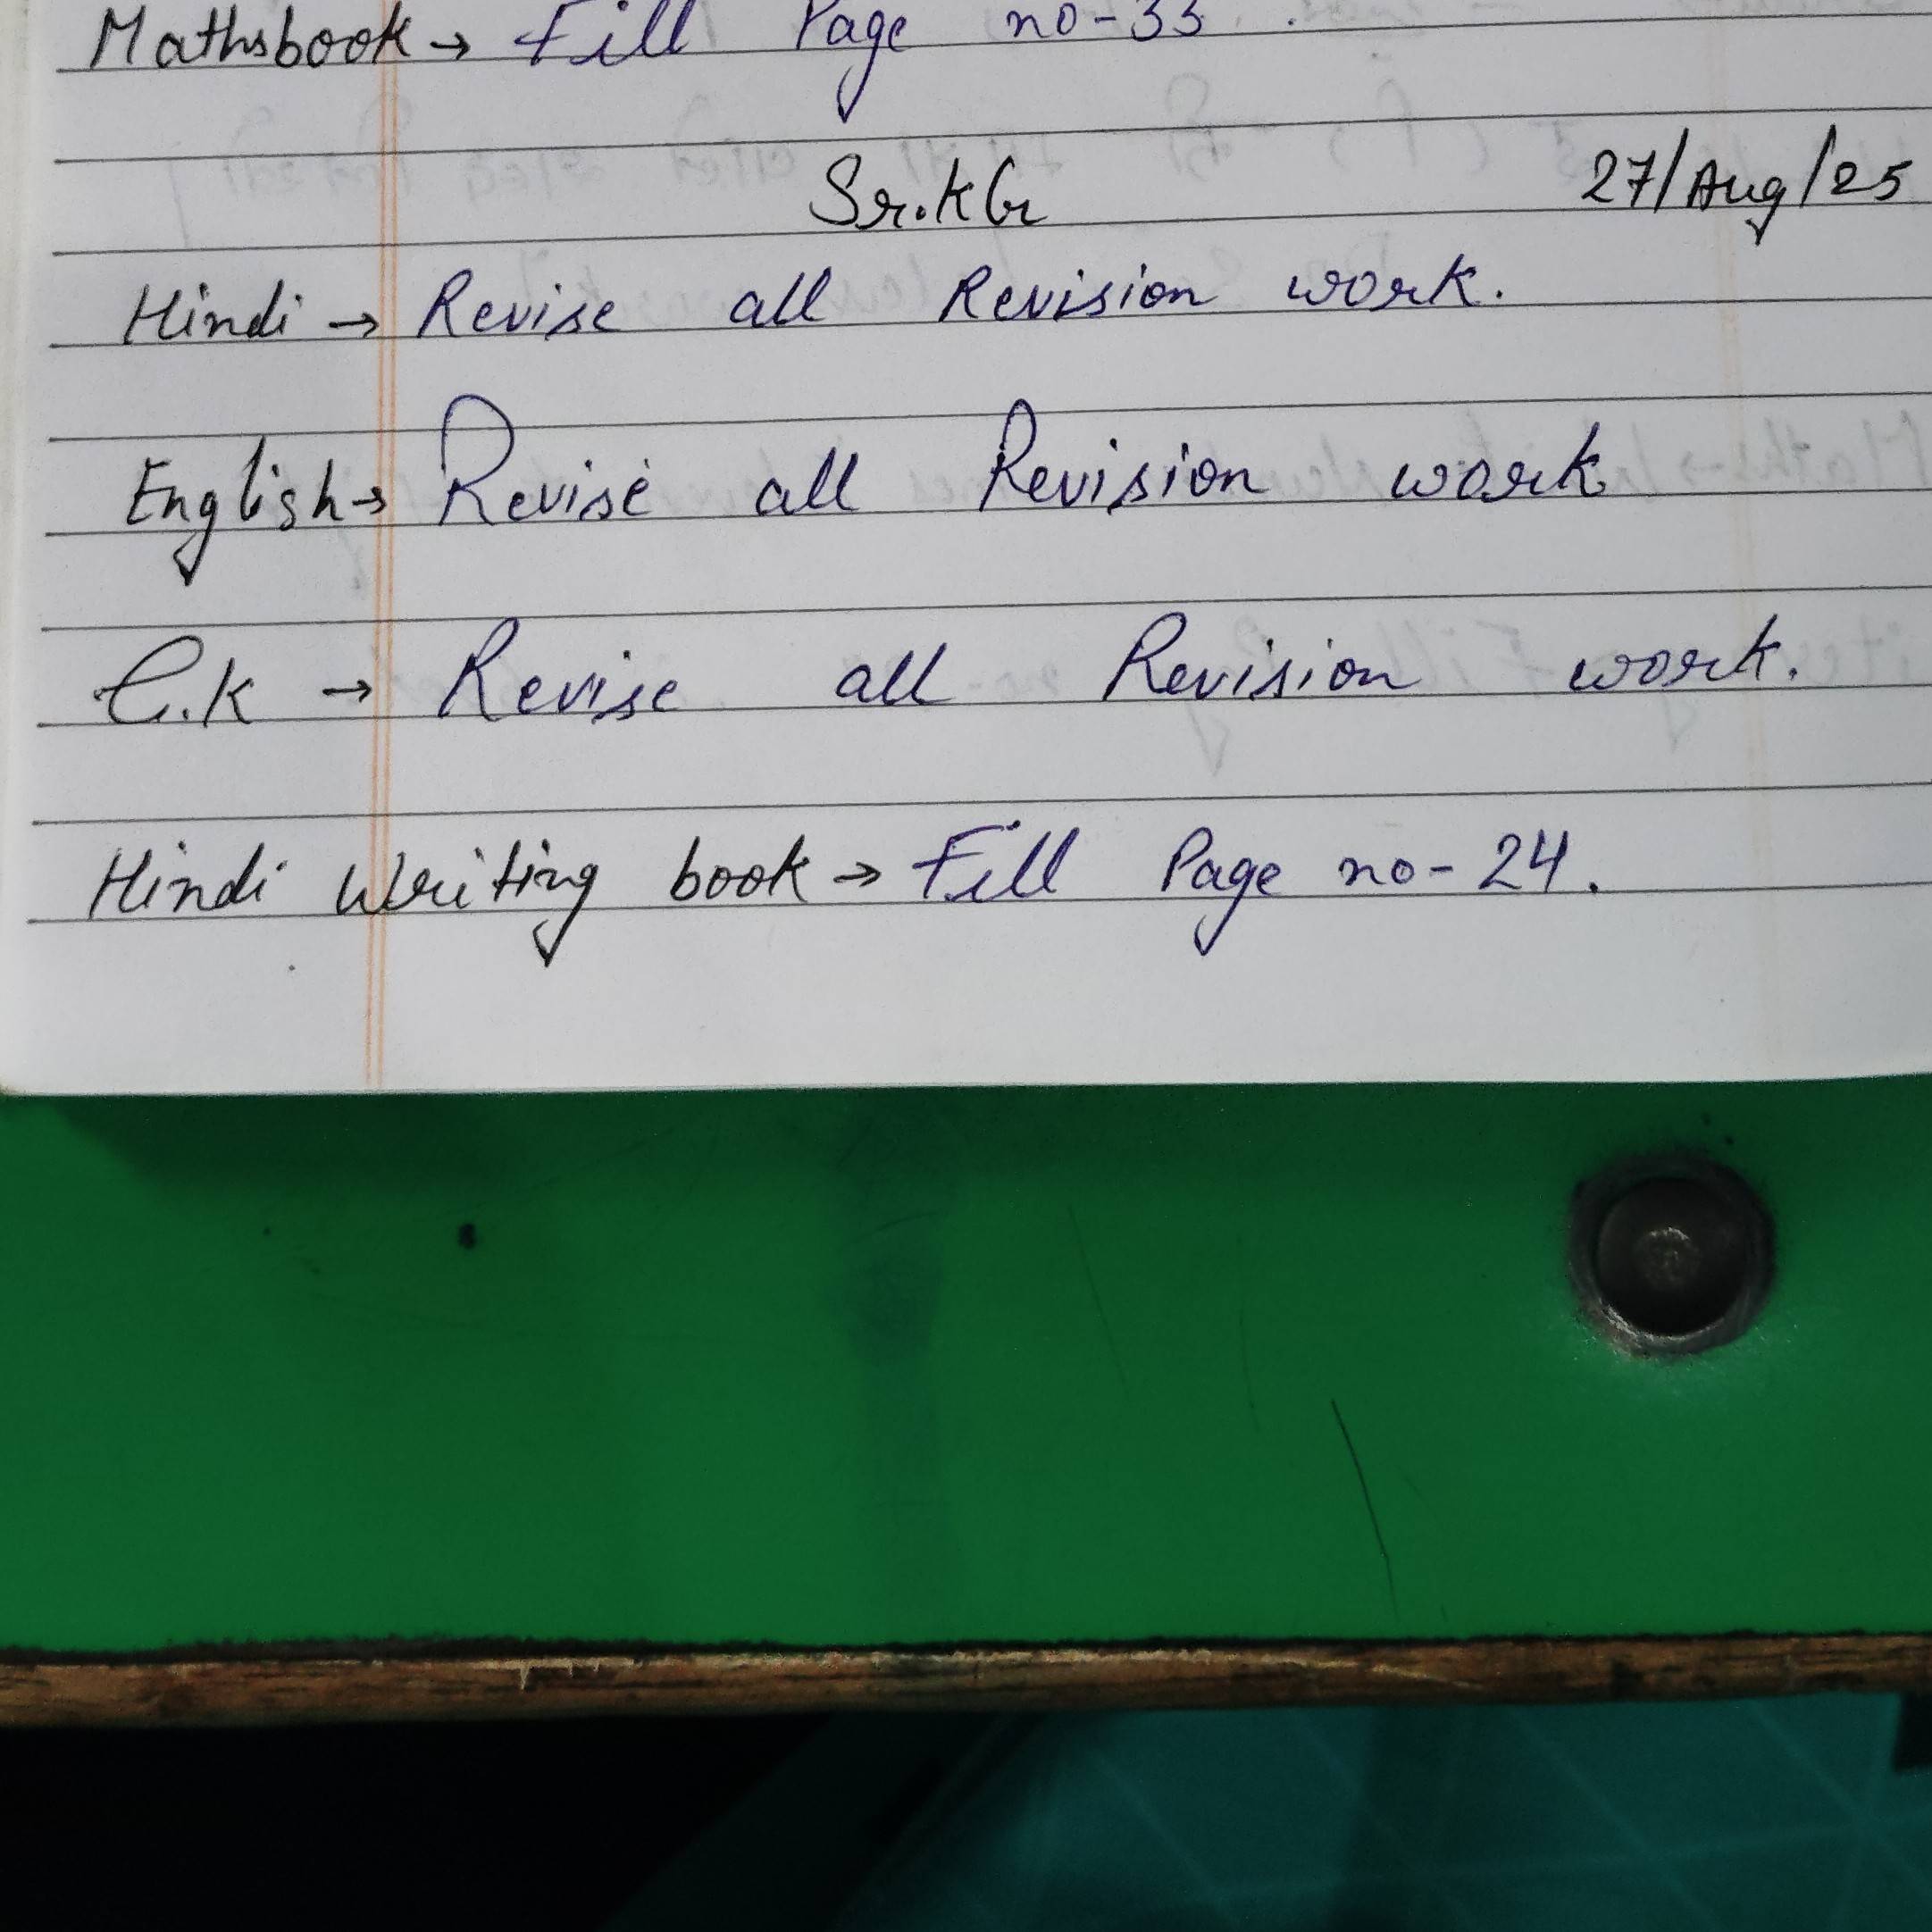 Mathsbook → Fill Page no-33.
Sr.KG 27/Aug/25
Hindi → Revise all Revision work.
English → Revise all Revision work
G.K → Revise all Revision work.
Hindi Writing book → Fill Page no-24.